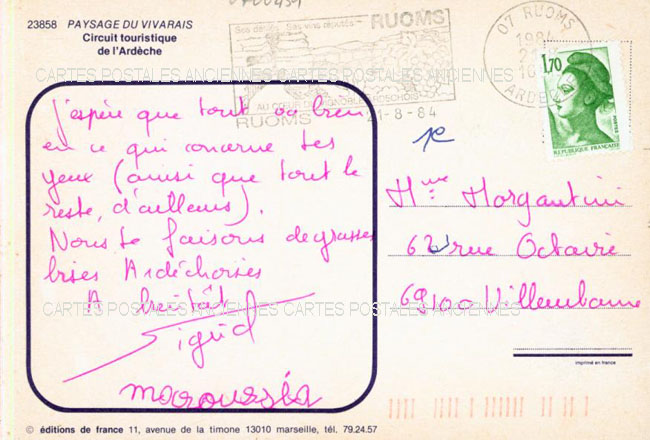 23858 PAYSAGE DU VIVARAIS
Circuit touristique
de l'Ardèche
RUOMS
AU COEUR
RUOMS
21-8-84
07 RUOMS
1984
ARDECHE
1,70
REPUBLIQUE FRANÇAISE
POSTES
CARTES POSTALES ANCIENNES CARTES POSTALES ANCIENNES
J'espère que tout va bien
en ce qui concerne tes
yeux (ainsi que tout le
reste, d'ailleurs).
Nous te faisons de grosses
bises Ardéchoises
A bientôt
Sigrid
maroussia
Mme Morgantini
62 rue Octavie
69100 Villeurbanne
CARTES POSTALES ANCIENNES CARTES POSTALES ANCIENNES
imprimé en france
© éditions de france 11, avenue de la timone 13010 marseille, tél. 79.24.57